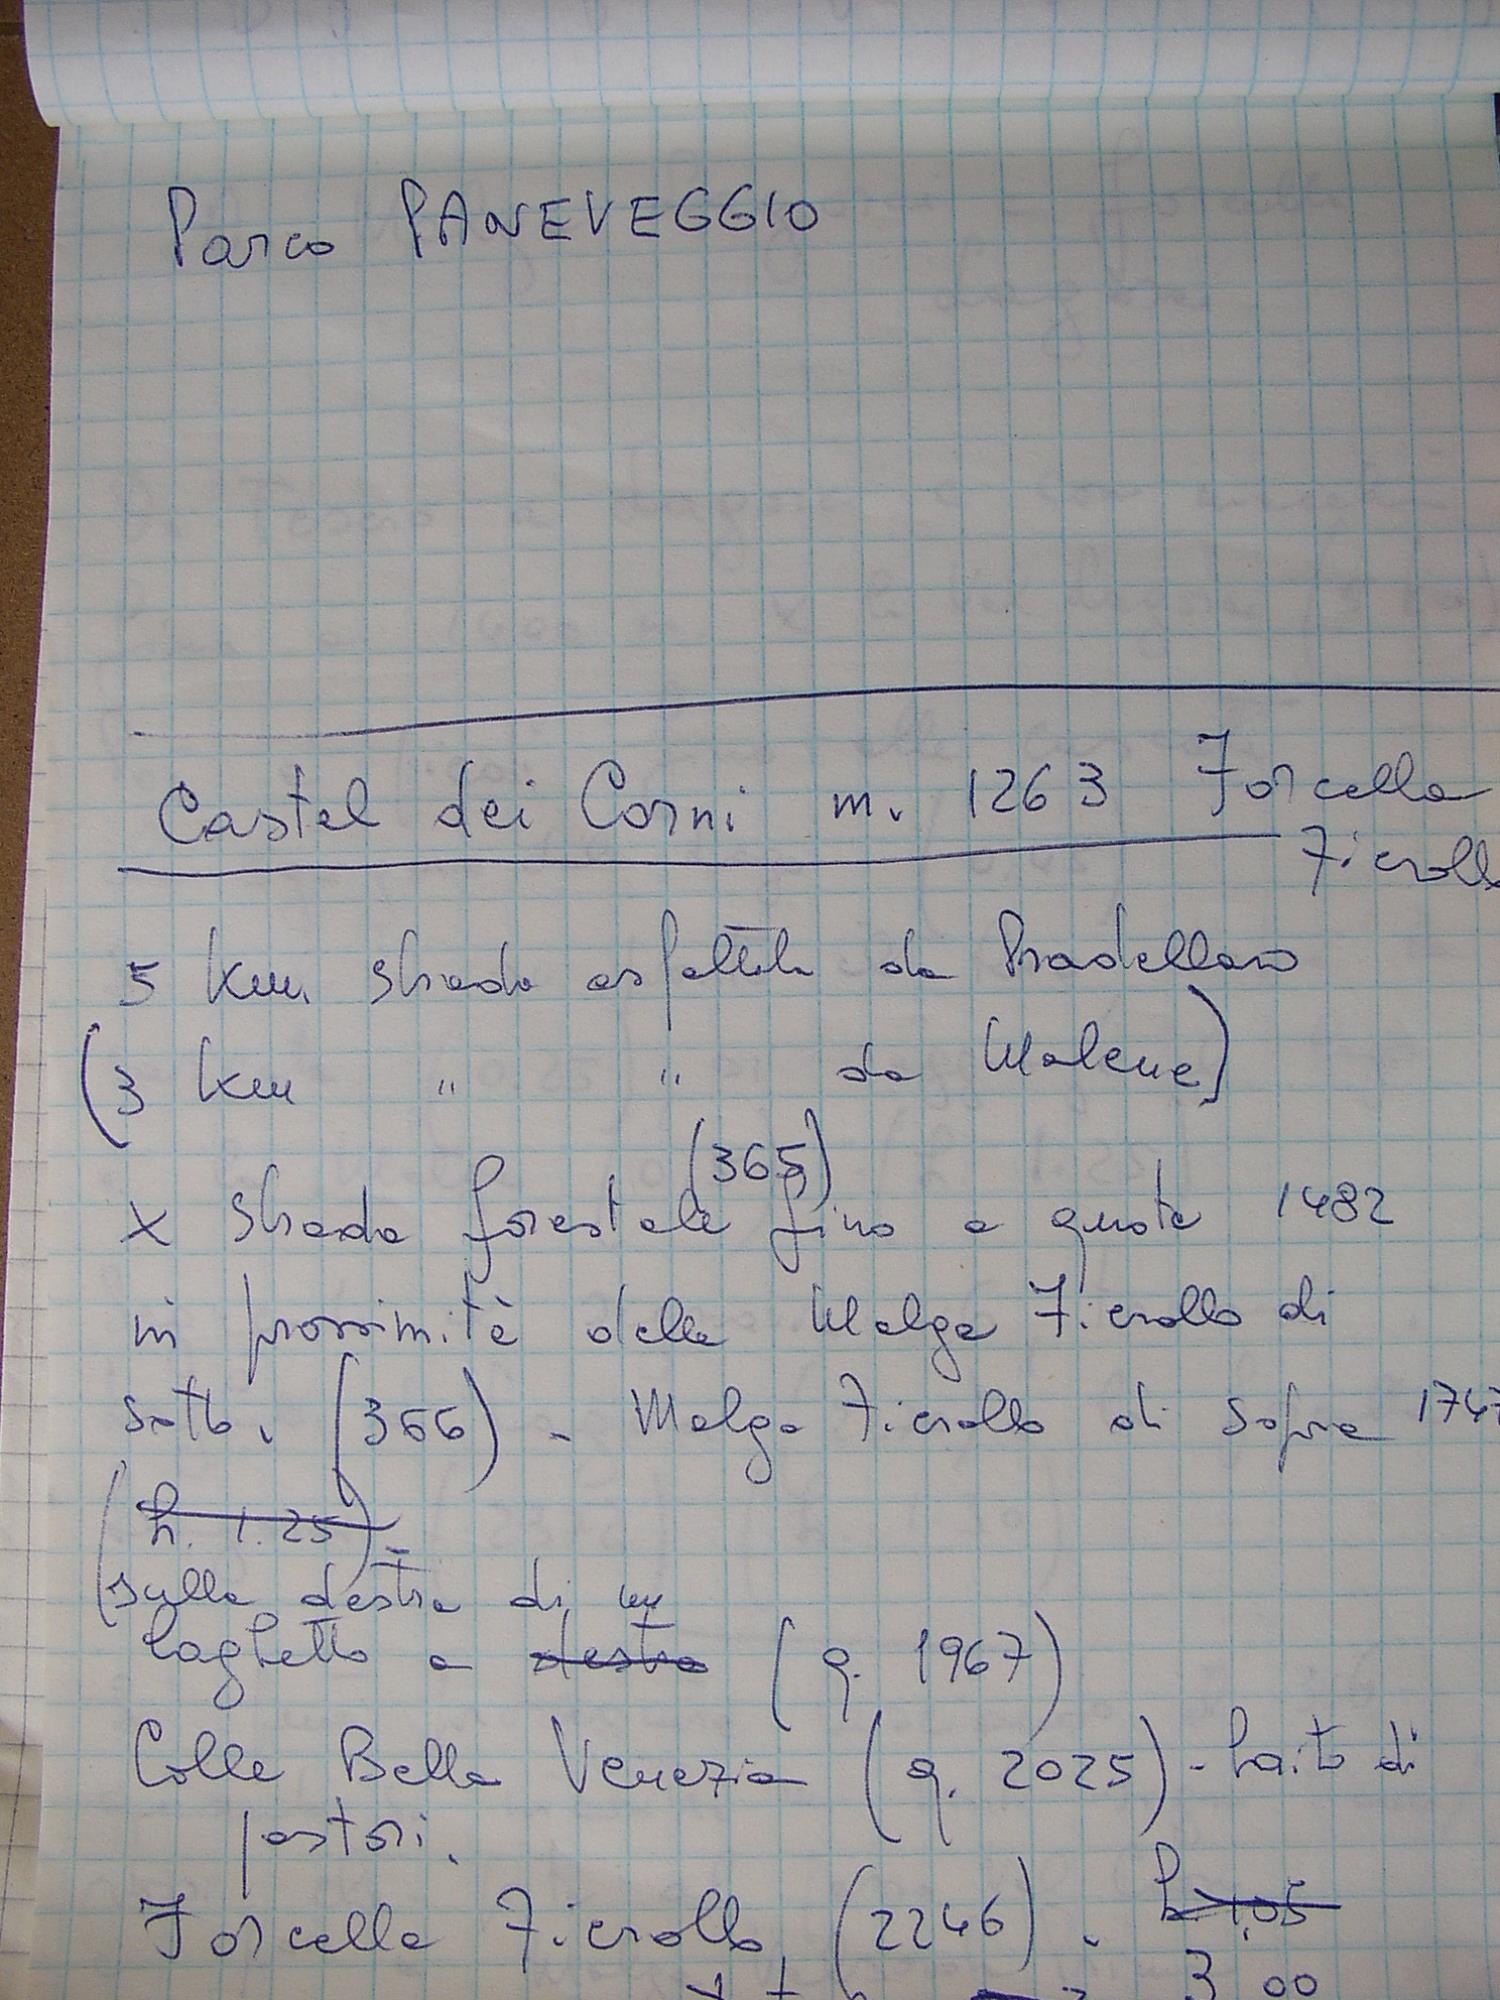 Parco PANEVEGGIO
Castel dei Corni m. 1263 Forcella
Fierollo
5 Km. strada asfaltata da Pradellano
(3 Km " " da Malene)
(365)
x strada forestale fino a quota 1482
in prossimità della Malga Fierollo di
sotto. (366) - Malga Fierollo di sopra 1747
(h. 1.25) -
(sulla destra di un
laghetto a destra (q. 1967)
Colle Bella Venezia (q. 2025) - baito di
pastori.
Forcella Fierollo (2246) - h 1,05
3 00